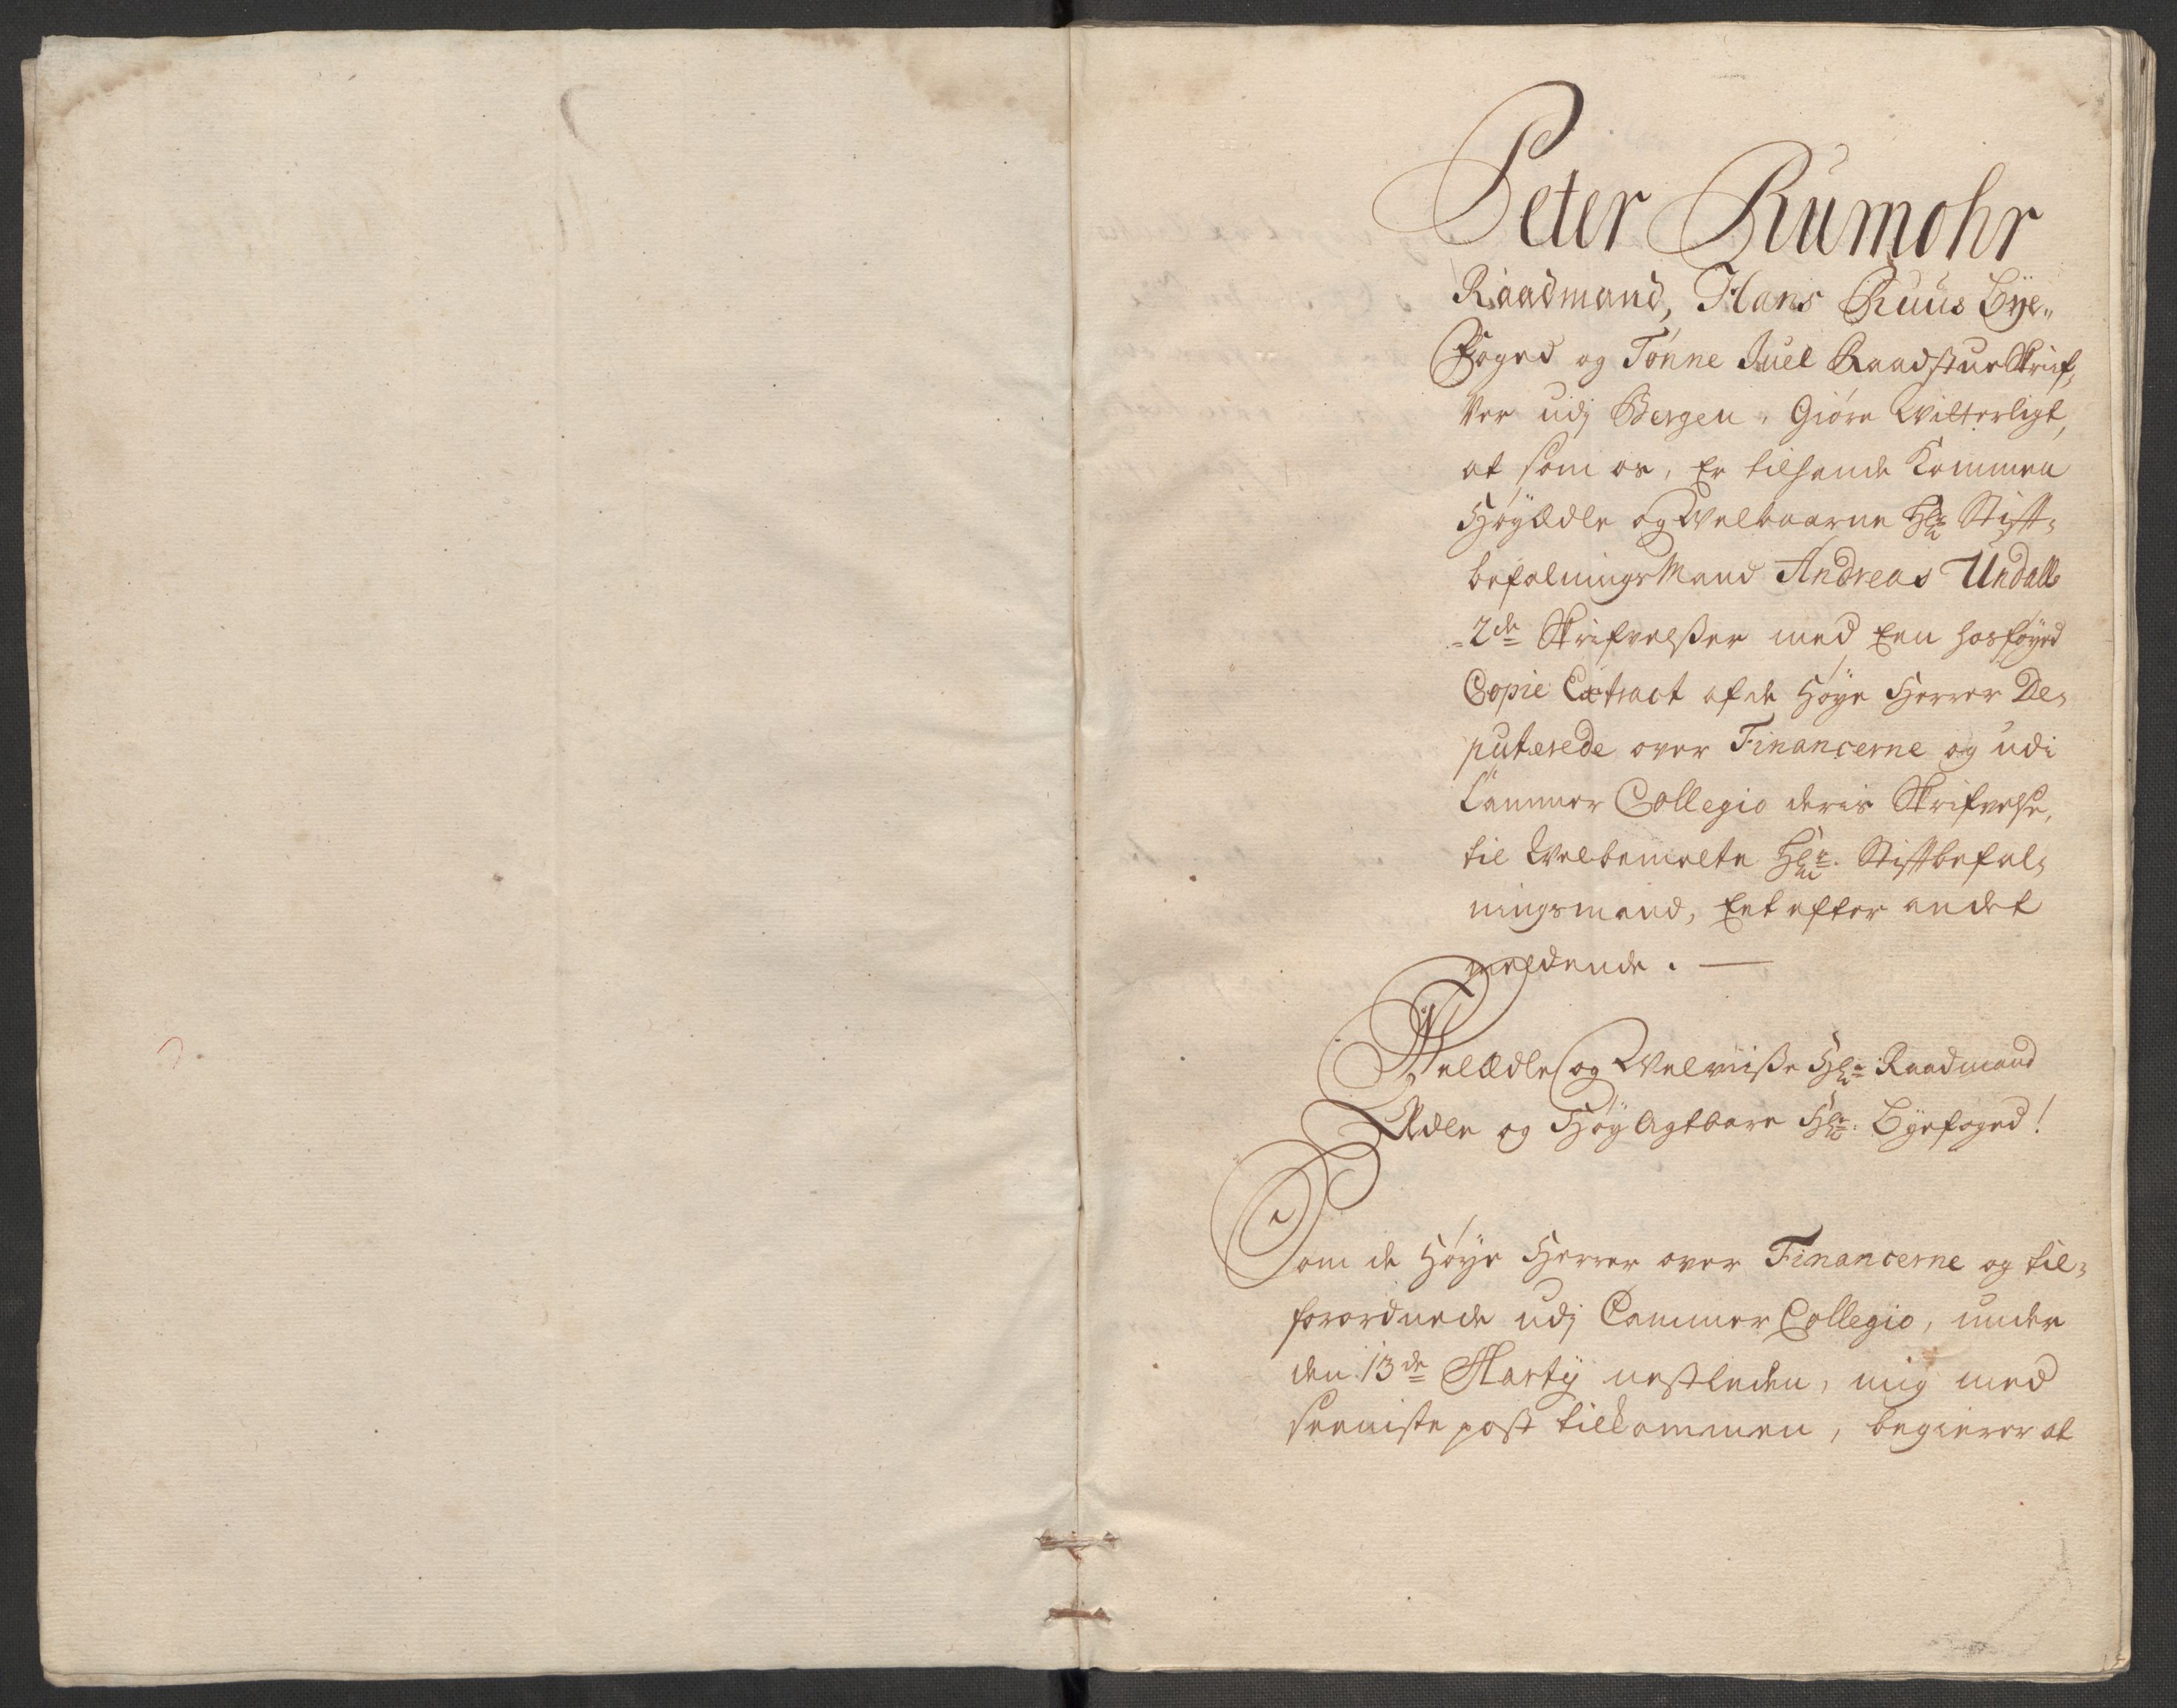 Peter Rumohr
Raadmand, Hans Ruus Bÿe„
Foged og Tønne Juel Raadstue Skrif„
ver udj Bergen, Giøre Witterligt,
at som os, Er tilhende Kommen
Høÿædle og Welbaarne Hr Stift„
befalnings Mand Andreas Undall
2de Skrifvelßer med Een hosføÿed
Copie Extract af de Høÿe Herrer De„
puterede over Financerne og udi
Cammer Collegio deris Skrifvelse,
til Welbemelte Hr. Stiftbefal„
ningsmand, Eet efter andet
meldende. —
Welædle og Welviiße Hr Raadmand
Ædle og Høÿ Agtbare Hr. Bÿefoged!
Som de Høÿe Herrer over Financerne og til„
forordnede udj Cammer Collegio, under
den 13de Martÿ nestleden, mig med
seeniste post tilkommen, begierer at